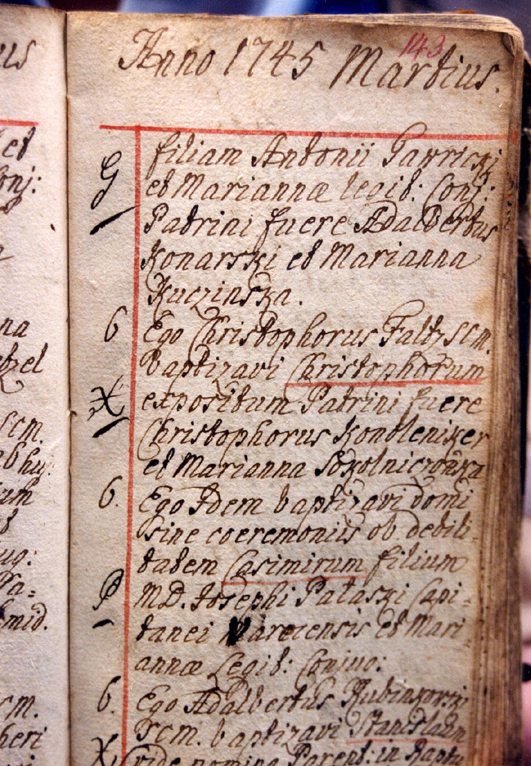 143
Anno 1745 Martius.
G
filiam Andonii
et Mariannæ legit: Conj:
Patrini fuere Adalbertus
Konarski et Marianna
Kuczinska.
6 Ego Christophorus Faltz scm.
baptizavi Christophorum
X expositum Patrini fuere
Christophorus
et Marianna
6. Ego Idem baptizavi domi
sine coeremoniis ob debili-
tatem Casimirum filium
P MD. Josephi Pataszi Capi-
tanei Varecensis et Mari-
annæ Legit: Conjug:
6. Ego Adalbertus
scm. baptizavi Stanislaum
X vide nomina Parent: in
na
scm.
um
mid.
cm.